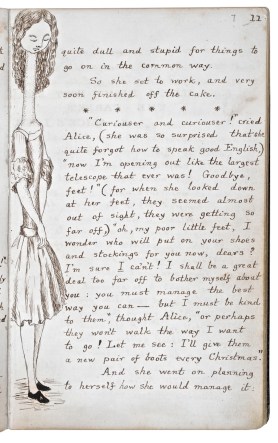 7 22
quite dull and stupid for things to
go on in the common way.
So she set to work, and very
soon finished off the cake.
* * * * * *
"Curiouser and curiouser!" cried
Alice, (she was so surprised that she
quite forgot how to speak good English,)
"now I'm opening out like the largest
telescope that ever was! Goodbye,
feet!" (for when she looked down
at her feet, they seemed almost
out of sight, they were getting so
far off,) "oh, my poor little feet, I
wonder who will put on your shoes
and stockings for you now, dears?
I'm sure I ca'n't! I shall be a great
deal too far off to bother myself about
you: you must manage the best
way you can — but I must be kind
to them", thought Alice, "or perhaps
they won't walk the way I want
to go! Let me see: I'll give them
a new pair of boots every Christmas."
And she went on planning
to herself how she would manage it: